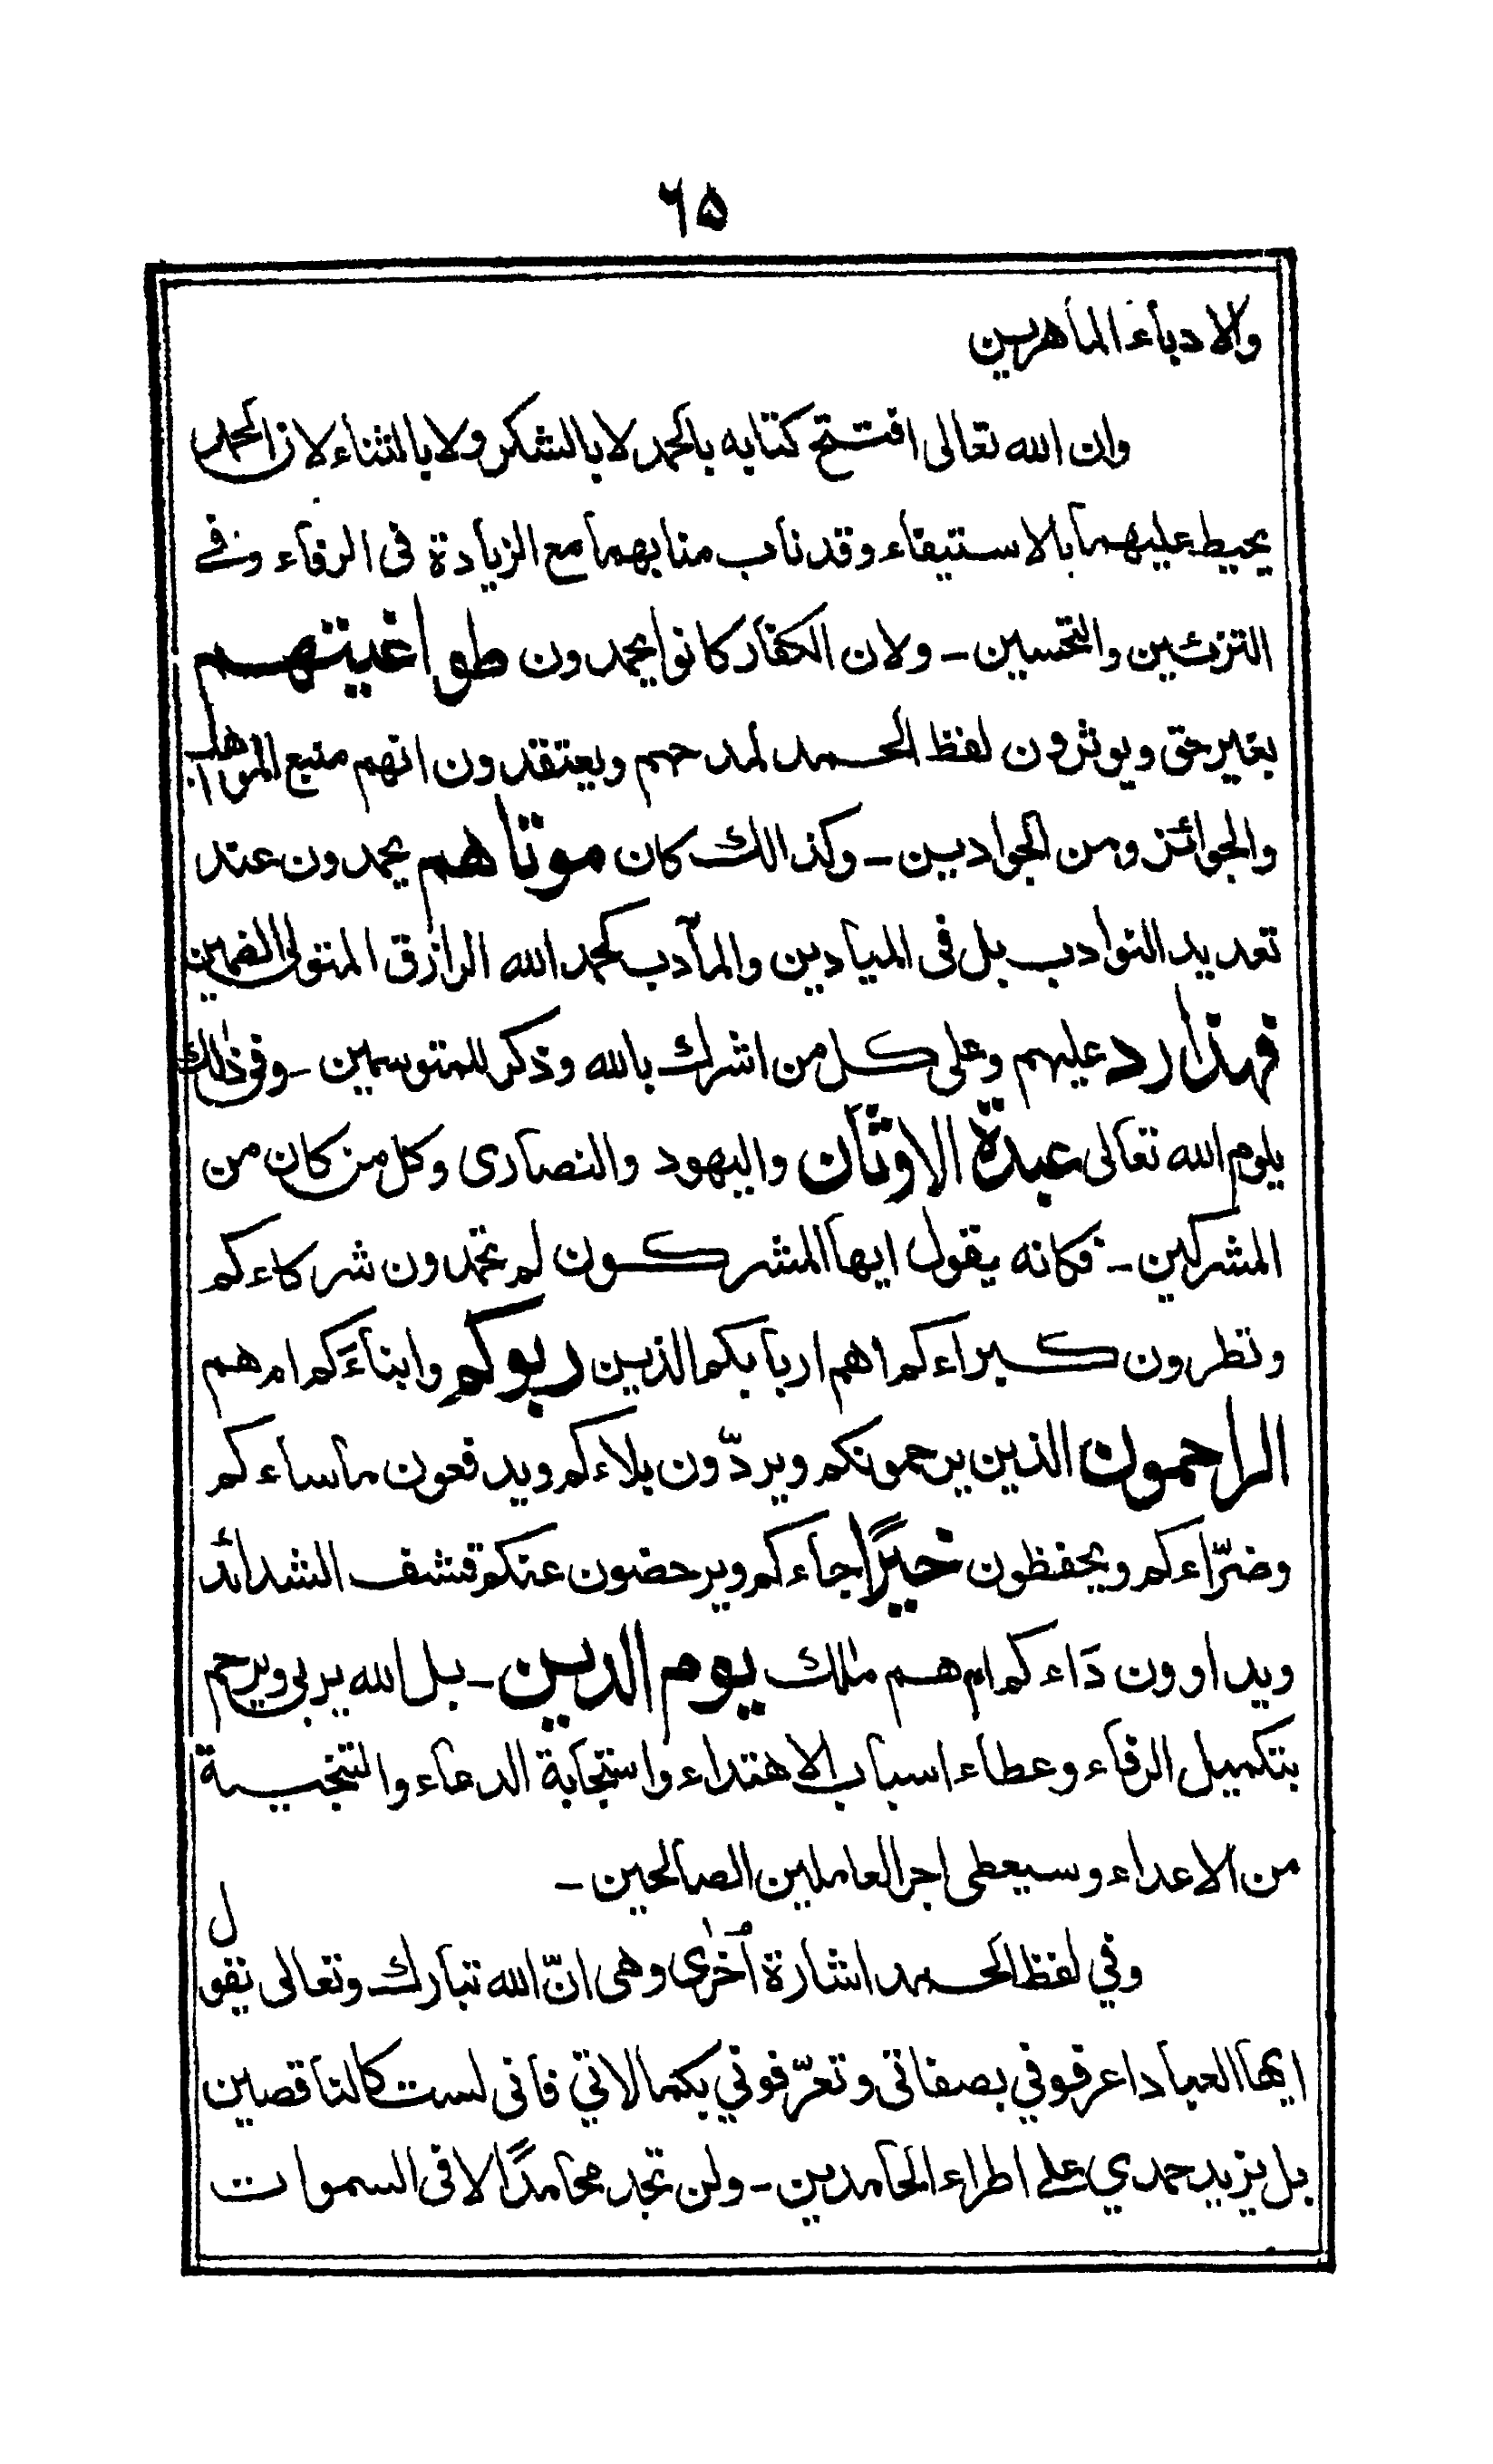 ٦٥
والادباء الماهرين
وان الله تعالى افتتح كتابه بالحمد لا بالشكر ولا بالثناء لان الحمد
يحيط عليهما بالاستيفاء وقد ناب منابهما مع الزيادة فى الرفاء وفى
التزئين والتحسين - ولان الكفار كانوا يحمدون طواغيتهم
بغير حق ويوثرون لفظ الحمد لمدحهم ويعتقدون انهم منبع المواهب
والجوائز ومن الجوادين - وكذالك كان موتاهم يحمدون عند
تعديد النوادب بل فى الميادين والمآدب كحمد الله الرازق المتولى الضمين
فهذا رد عليهم وعلى كل من اشرك بالله وذكر للمتوسمين - وفى ذٰلك
يلوم الله تعالى عبدة الاوثان واليهود والنصارى وكل من كان من
المشركين - فكانه يقول ايها المشركون لم تحمدون شركاءكم
وتطرون كبراءكم اهم اربابكم الذين ربوكم وابناءَكم ام هم
الراحمون الذين يرحمونكم ويردّون بلاءكم ويدفعون ماساءكم
وضرّاءكم ويحفظون خيرًا جاءكم ويرحضون عنكم قشف الشدائد
ويداوون داءكم ام هم مٰلك يوم الدين - بل الله يربى ويرحم
بتكميل الرفاء وعطاء اسباب الاهتداء واستجابة الدعاء والتنجية
من الاعداء وسيعطى اجر العاملين الصالحين -
وفي لفظ الحمد اشارة اُخرٰى وهى انّ الله تبارك وتعالى يقول
ايها العباد اعرفوني بصفاتى وتعرّفوني بكمالاتي فانى لست كالناقصين
بل يزيد حمدي على اطراء الحامدين - ولن تجد محامدًا لا فى السموات